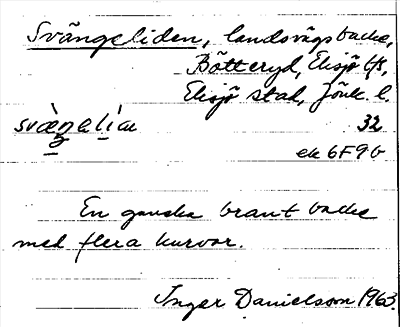 Svängeliden, landsvägsbacke,
Bötteryd, Eksjö lfs,
Eksjö stad, Jönk. l.
svæ̀ŋəlìən 32
ek 6F9b
En ganska brant backe
med flera kurvor.
Inger Danielsson 1963.